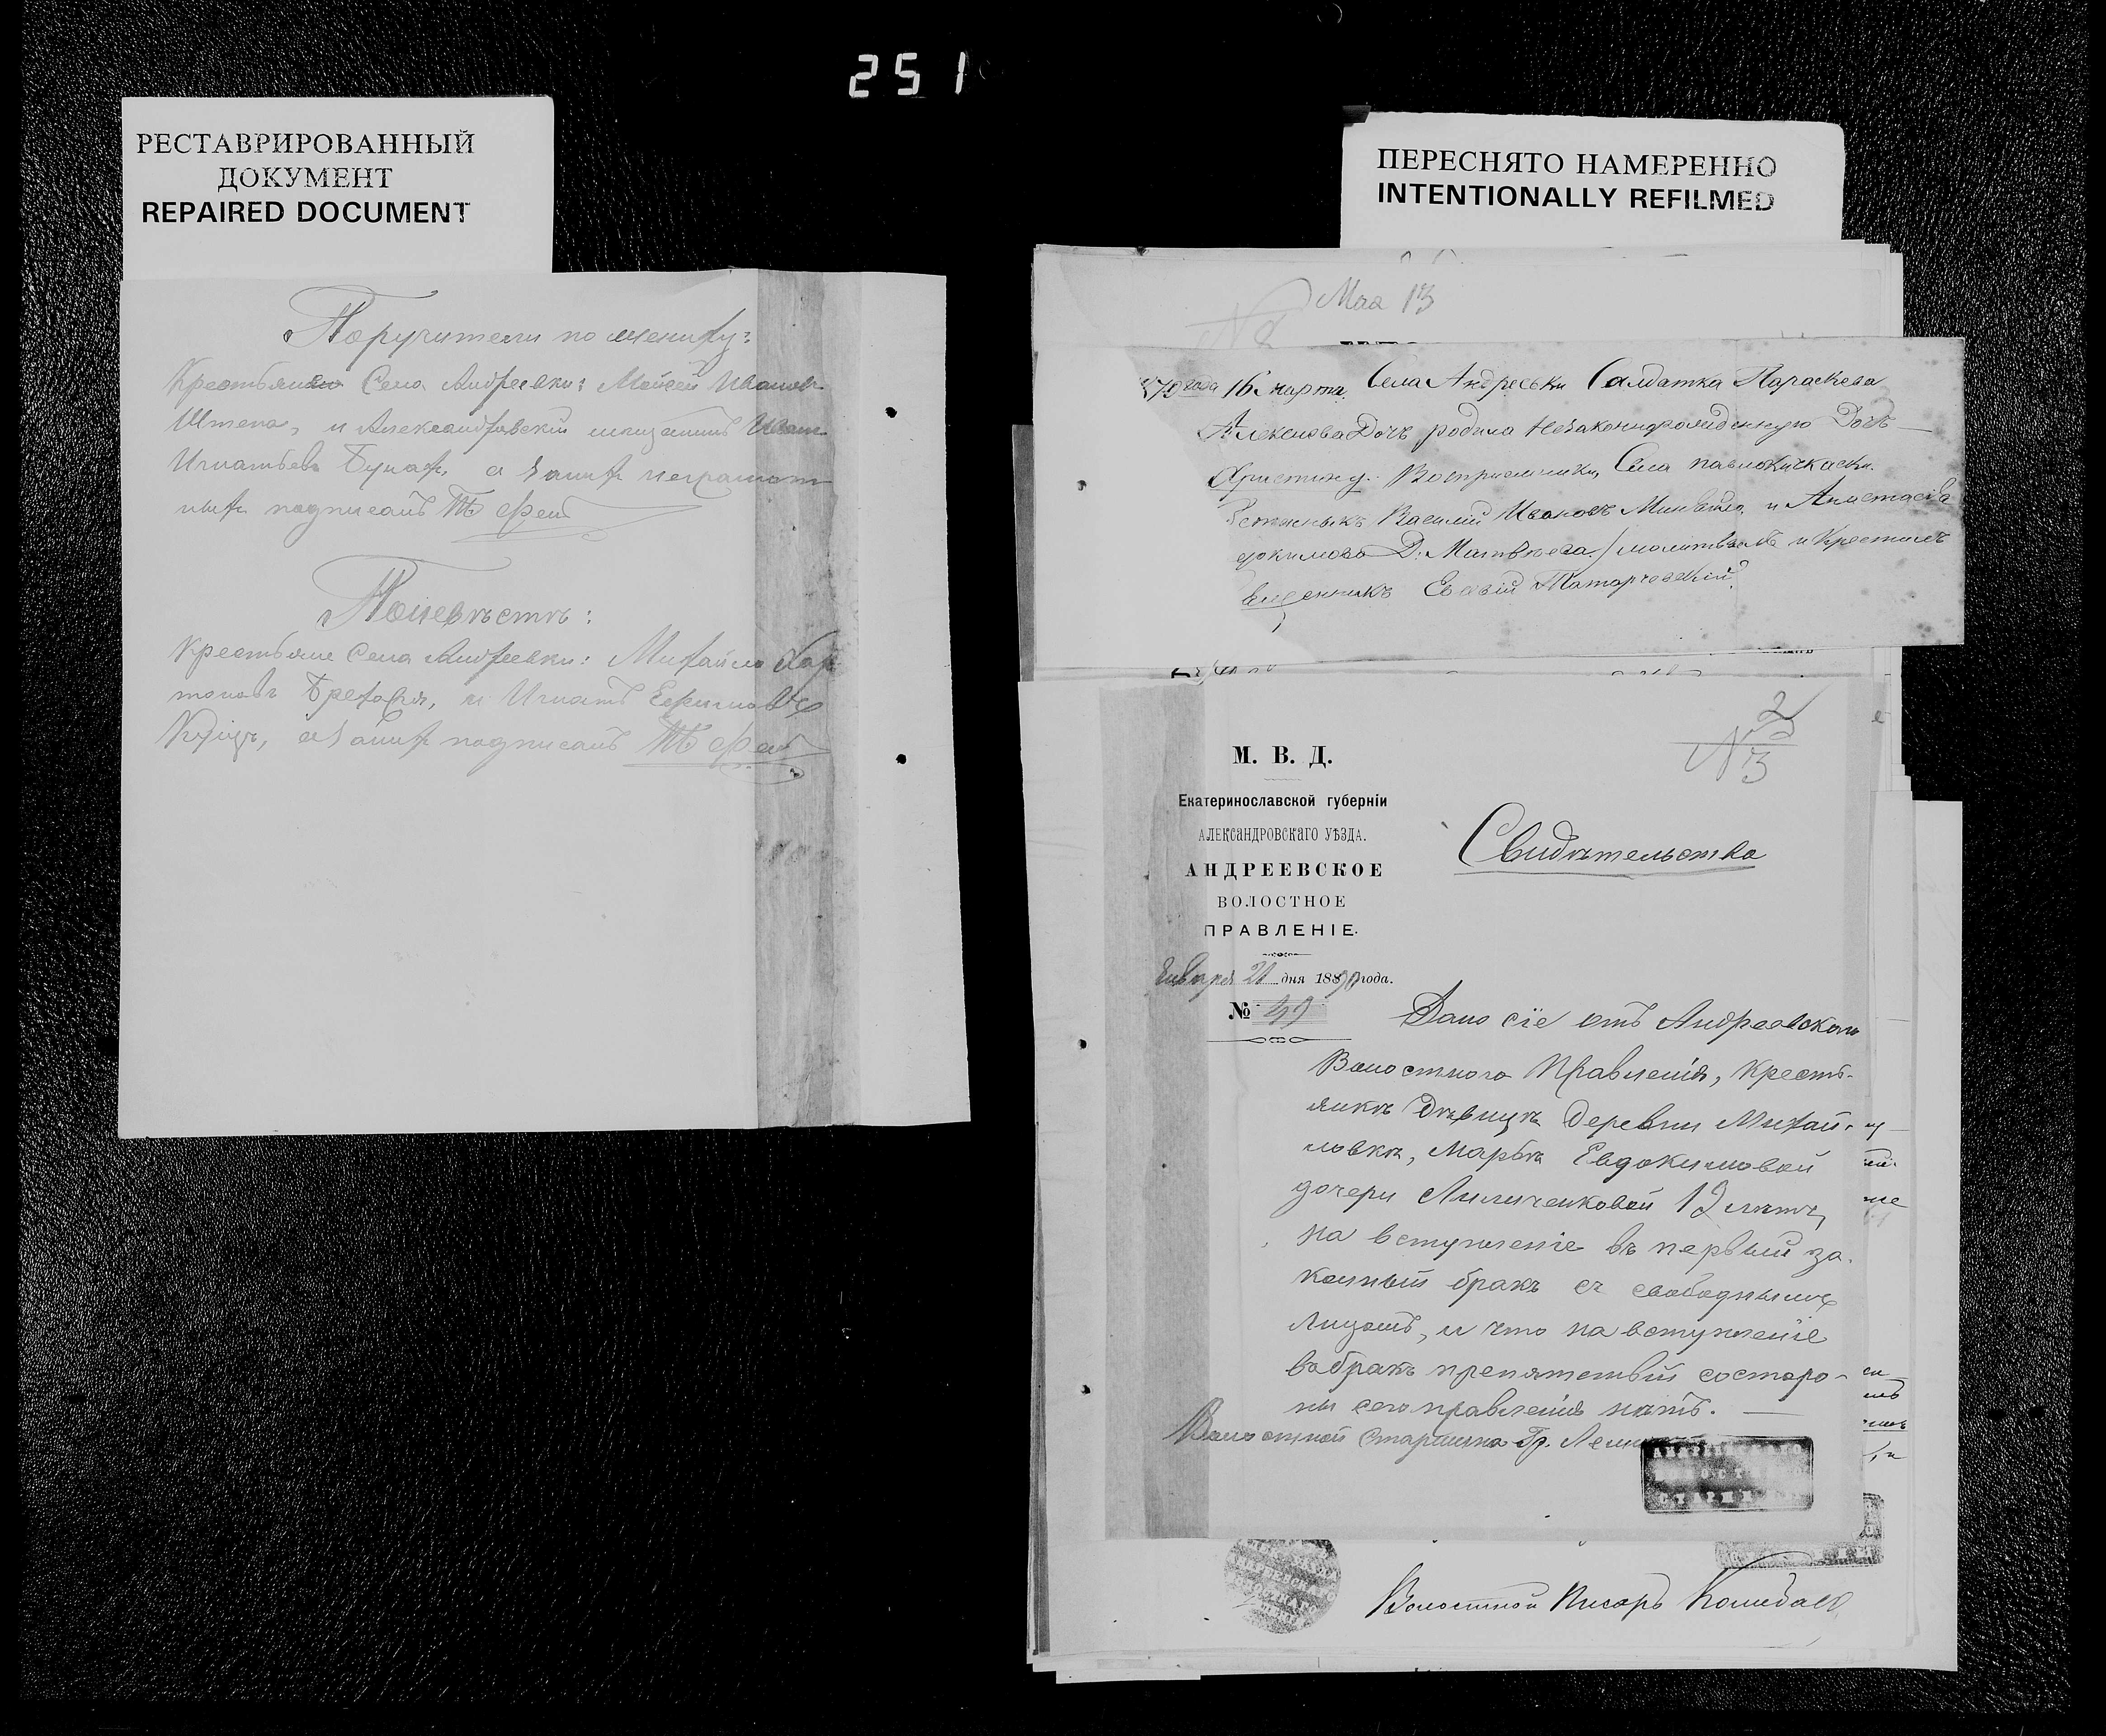 251
РЕСТАВРИРОВАННЫЙ
ДОКУМЕНТ
REPAIRED DOCUMENT
Поручители по жениху:
Крестьяне Села Андреевки: Мойсей Иванов
Штепа, и Александровский мещанинъ Иван
Игнатьевъ, а за нихъ неграмот
ныхъ подписалъ
По невѣстѣ:
Крестьяне Села Андреевки: Михайло Хар
тоновъ, и Игнатъ Ефимовъ
Куцъ, а за нихъ подписалъ
ПЕРЕСНЯТО НАМЕРЕННО
INTENTIONALLY REFILMED
Мая 13
№
года 16 марта, Села Андреевки Салдатка Параскева
Алексеева Дочь родила Незаконнорожденную Дочь
Христину. Восприемники, Села
Василий Ивановъ и Анастасія
Д. Матвѣева / молитвовалъ и Крестилъ
2
№ 3
М. В. Д.
Екатеринославской губерніи
АЛЕКСАНДРОВСКАГО УѢЗДА.
АНДРЕЕВСКОЕ
ВОЛОСТНОЕ
ПРАВЛЕНІЕ.
Января 21 дня 1890 года.
№
Свидѣтельство
Дано сіе отъ Андреевского
Волостного Правленія, Кресть-
янкѣ Дѣвицѣ Деревни Михай-
ловки, Марьѣ Евдокимовой
дочери Линиченковой 19 лѣтъ,
на вступленіе въ первый за-
конный бракъ съ свободнымъ
лицомъ, и что на вступленіе
в бракъ препятствій состаро-
ны сего правленія нѣтъ. —
Волостной Старшина Гр.
Волостной Писарь